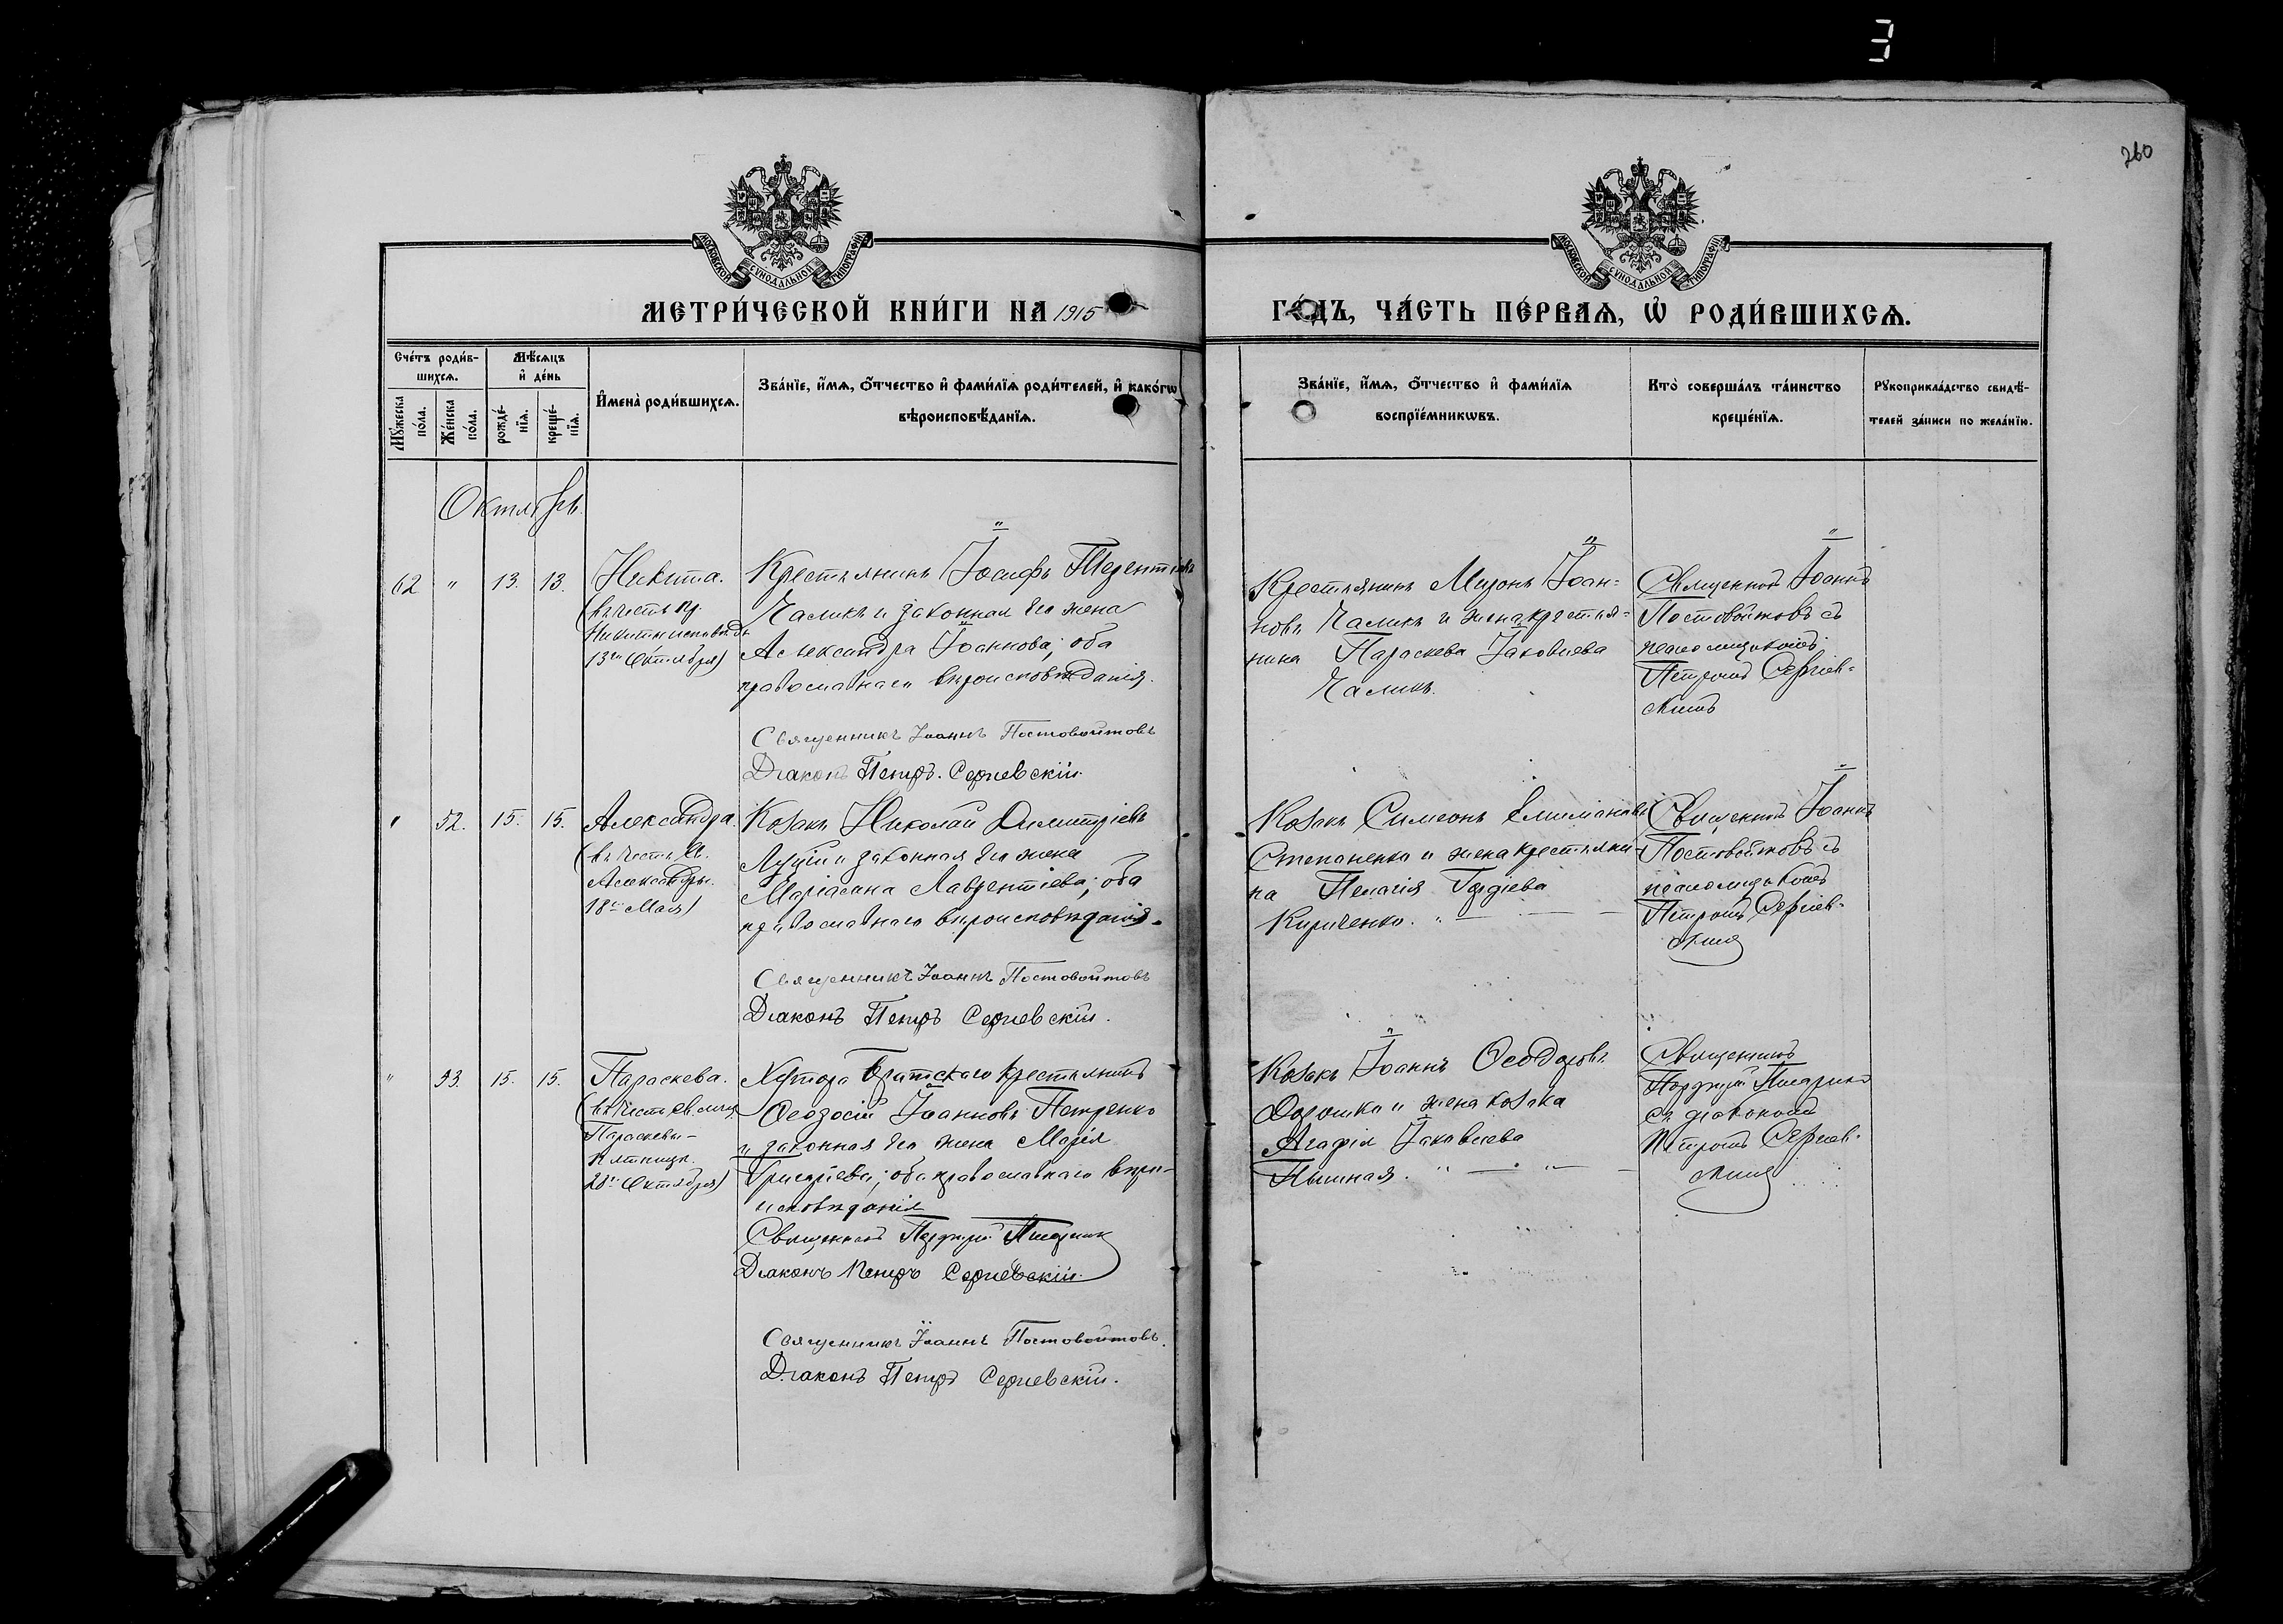 260
МОСКОВСКОЙ СѴНОДАЛЬНОЙ ТИПОГРАФІИ
МОСКОВСКОЙ СѴНОДАЛЬНОЙ ТИПОГРАФІИ
МЕТРИ́ЧЕСКОЙ КНИ́ГИ НА 1915
ГО́ДЪ, ЧА́СТЬ ПЕ́РВАѦ, Ѡ҆ РОДИ́ВШИХСѦ.
Сче́тъ роди́в-
шихсѧ.
Мꙋ́жеска по́ла.
Же́нска по́ла.
Мѣ́сѧцъ
и҆ де́нь
рожде́-
нїѧ.
креще́-
нїѧ.
И҆мена̀ роди́вшихсѧ.
Зва́нїе, и҆́мѧ, ѻ҆́тчество и҆ фами́лїѧ роди́телей, и҆ како́гѡ
вѣроисповѣ́данїѧ.
Зва́нїе, и҆́мѧ, ѻ҆́тчество и҆ фами́лїѧ
воспрїе́мникѡвъ.
Кто̀ соверша́лъ та́инство
креще́нїѧ.
Рꙋкоприкла́дство свидѣ́-
телей за́писи по жела́нїю.
Октябрь.
62 " 13. 13.
Никита.
(въ честь пр.
Никиты исповѣдн.
13го Октября)
Крестьянинъ Іосифъ Терентіевъ
Чаликъ и законная его жена
Александра Іоаннова; оба
православнаго вѣроисповѣданія.
Священникъ Іоаннъ Постовойтовъ
Діаконъ Петръ Сергіевскій.
Крестьянинъ Миронъ Іоан=
новъ Чаликъ и жена крестья=
нина Параскева Іаковлева
Чаликъ.
Священникъ Іоаннъ
Постовойтовъ съ
псаломщикомъ
Петромъ Сергіев=
скимъ
" 52. 15. 15.
Александра.
(въ честь св.
Александры.
18го Мая)
Козакъ Николай Димитріевъ
и законная его жена
Маріанна Лаврентіева; оба
православнаго вѣроисповѣданія.
Священникъ Іоаннъ Постовойтовъ
Діаконъ Петръ Сергіевскій.
Козакъ Симеонъ
Степаненко и жена крестьяни-
на Пелагія Гордіева
Кириченко.
Священникъ Іоаннъ
Постовойтовъ съ
псаломщикомъ
Петромъ Сергіев-
скимъ
" 53. 15. 15.
Параскева.
(въ честь св. муч.
Параскевы-
Пятницы.
28го Октября)
Хутора Братскаго крестьянинъ
Ѳеодосій Іоанновъ Петренко
и законная его жена Марія
Григоріева; оба православнаго вѣро-
исповѣданія
Священникъ
Діаконъ Петръ Сергіевскій.
Священникъ Іоаннъ Постовойтовъ.
Діаконъ Петръ Сергіевскій.
Козакъ Іоаннъ Ѳеодоровъ
Дорошко и жена козака
Агафія Іаковлева
Пышная.
Священникъ
съ діакономъ
Петромъ Сергіев-
скимъ